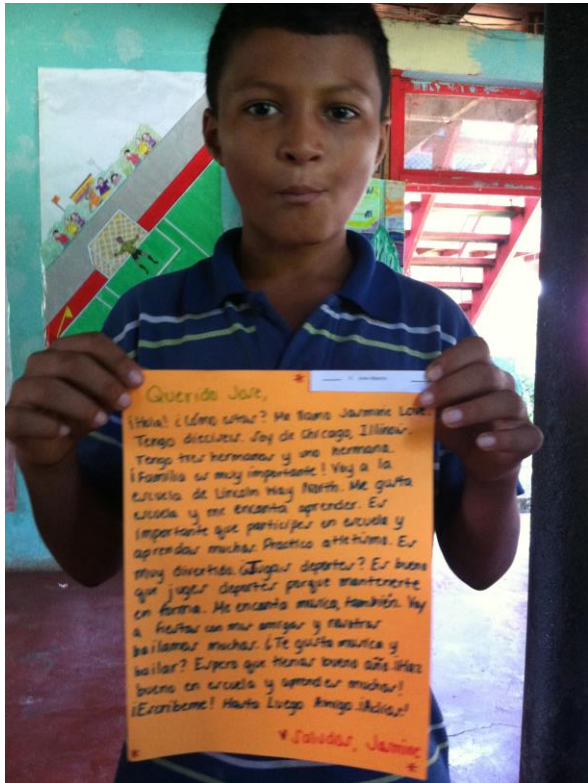 Querido Jose,
¡Hola! ¿Cómo estas? Me llamo Jasmine Love.
Tengo dieciseis. Soy de Chicago, Illinois.
Tengo tres hermanas y una hermana.
¡Familia es muy importante! Voy a la
escuela de Lincoln Way North. Me gusta
escuela y me encanta aprender. Es
importante que participes en escuela y
aprendas muchas. Practico atletismo. Es
muy divertido. ¿Juegas deportes? Es bueno
que juges deportes porque mantenerte
en forma. Me encanta musica, también. Voy
a fiestas con mis amigas y nosotras
bailamos muchas. ¿Te gusta musica y
bailar? Espero que tienas bueno año. ¡Haz
bueno en escuela y aprendes muchas!
¡Escribeme! Hasta Luego Amigo. ¡Adios!
Saludos, Jasmine